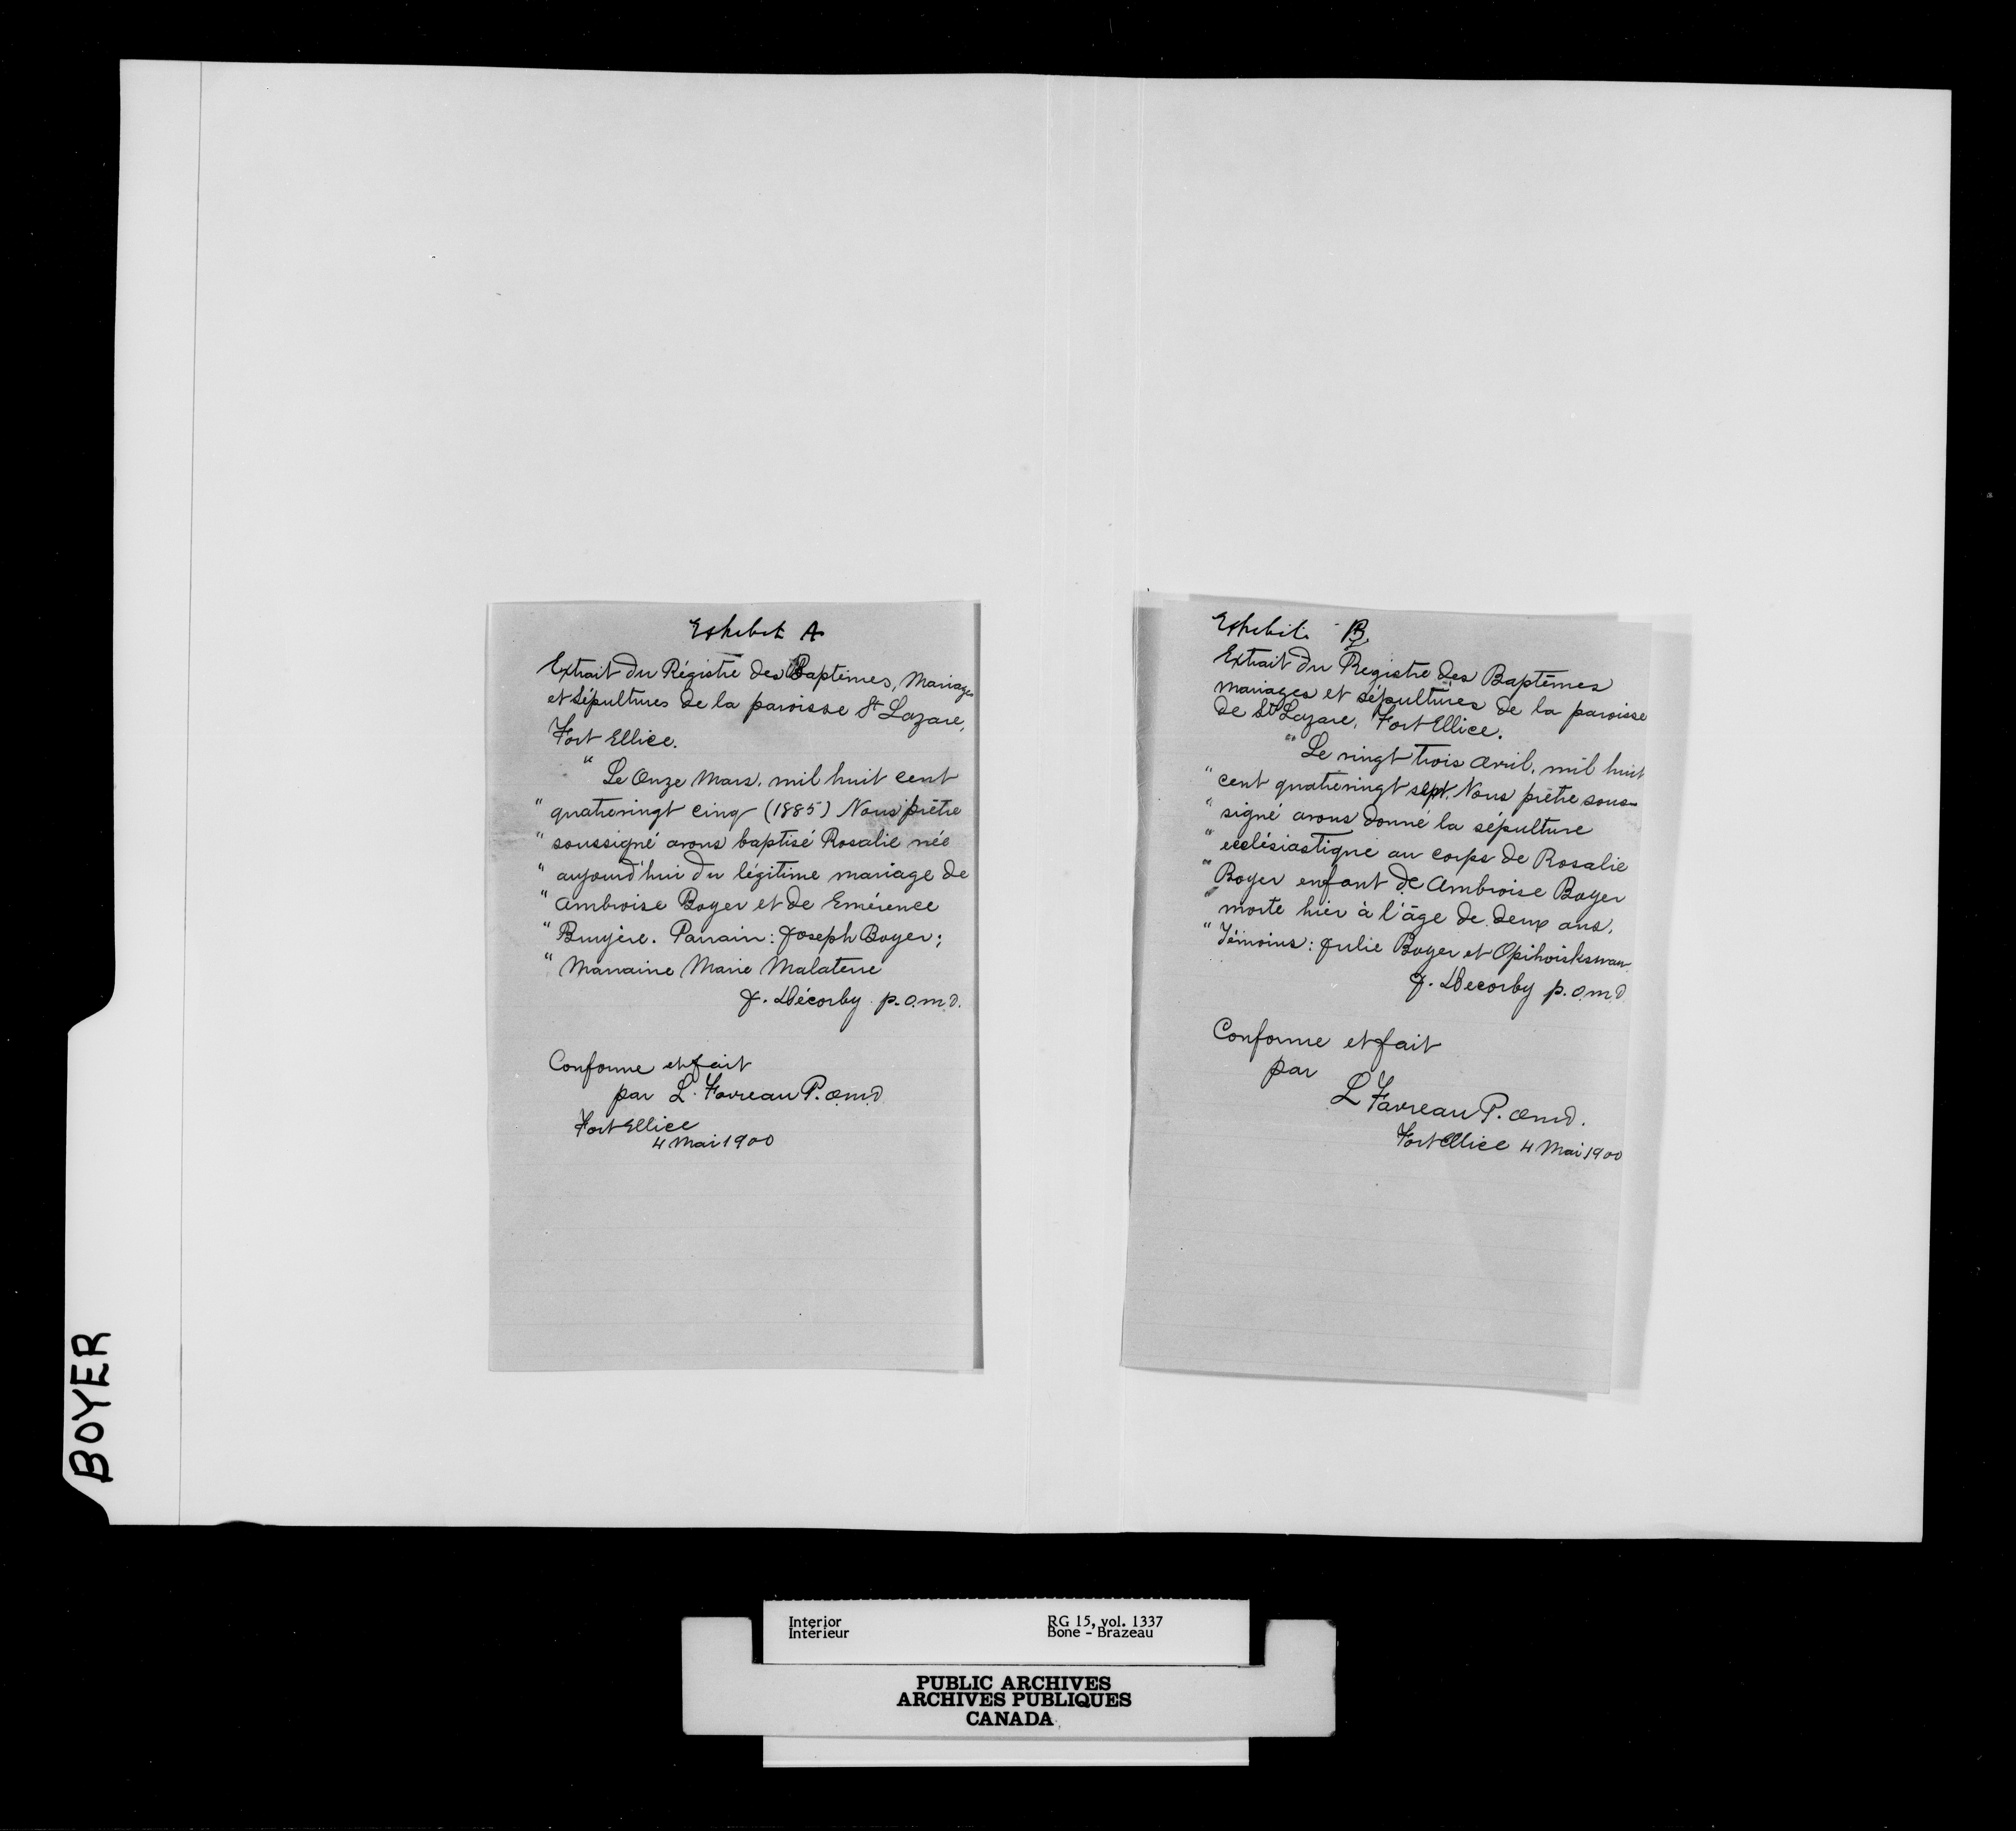 Exhibit A
Extrait du Régistre des Baptêmes, Mariages
et Sépultures de la paroisse St Lazare,
Fort Ellice.
" Le Onze Mars, mil huit cent
" quatrevingt cinq (1885) Nous prêtre
" soussigné avons baptisé Rosalie née
" aujourd'hui du légitime mariage de
" Ambroise Boyer et de Emérence
" Bruyère. Parrain: Joseph Boyer;
" Marraine Marie Malaterre
J. Décorby p.o.m.d.
Conforme et fait
par L. Favreau P. o.m.d
Fort Ellice
4 Mai 1900
Exhibit B
Extrait du Registre des Baptêmes
mariages et sépultures de la paroisse
de St Lazare, Fort Ellice.
" Le vingt trois Avril, mil huit
" cent quatrevingt sept. Nous prêtre sous-
" signé avons donné la sépulture
" ecclésiastique au corps de Rosalie
" Boyer enfant de Ambroise Boyer
" morte hier à l'âge de deux ans.
" Témoins: Julie Boyer et
J. Decorby p.o.m.d
Conforme et fait
par
L Favreau P. o.m.d.
Fort Ellice 4 Mai 1900
BOYER
Interior RG 15, vol. 1337
Intérieur Bone - Brazeau
PUBLIC ARCHIVES
ARCHIVES PUBLIQUES
CANADA